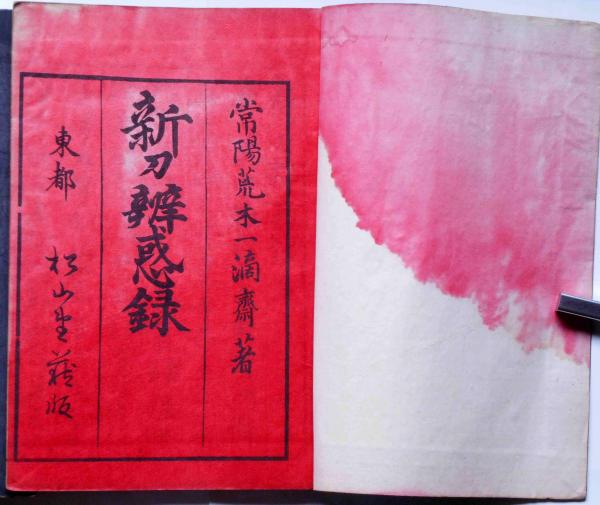 常陽荒木一滴齋著
新刀辨惑録
東都　松山堂藏版